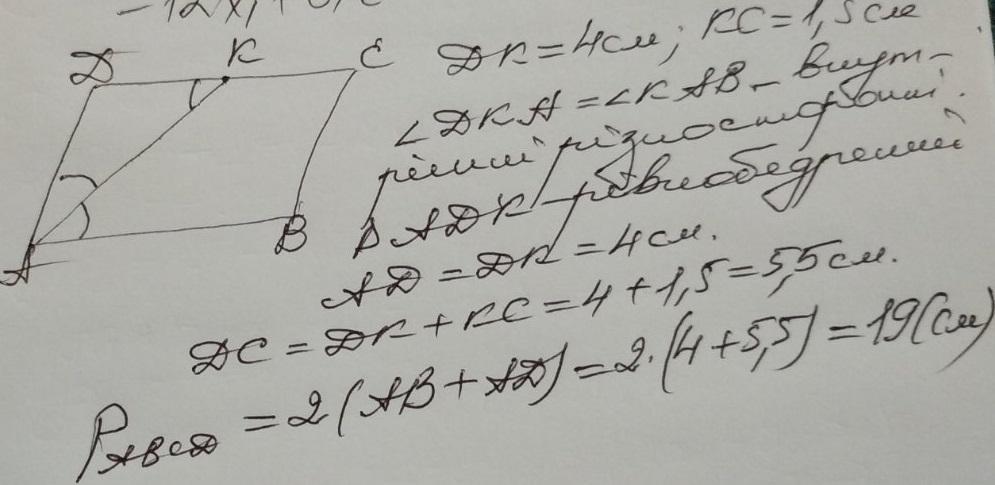 - 12x
D K C
DK = 4см; KC = 1,5 см
∠DKA = ∠KAB - внут-
рішні різносторонні.
A B
Δ ADK - рівнобедрений
AD = DK = 4см.
DC = DK + KC = 4 + 1,5 = 5,5 см.
PABCD = 2(AB + AD) = 2·(4 + 5,5) = 19(см)